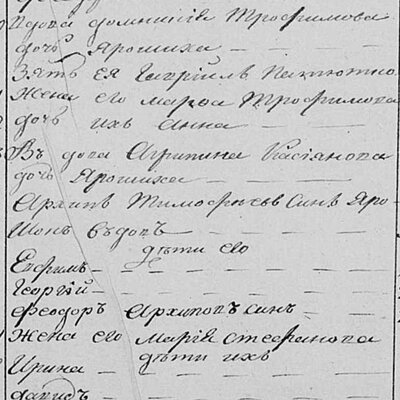 Вдова Домникия Трофимова
дочь Ярошиха
Зять ея Гавріилъ
Жена его Марѳа Трофимова
дочь ихъ Анна
Вдова Агрипина Касіянова
дочь Ярошиха
Архипъ Тимофѣевъ синъ Яро-
шонъ вѣдовъ
дѣти его
Евфимъ
Георгій
Феодоръ Архиповъ синъ
Жена его Марія Стефанова
дѣти ихъ
Ирина
Давидъ